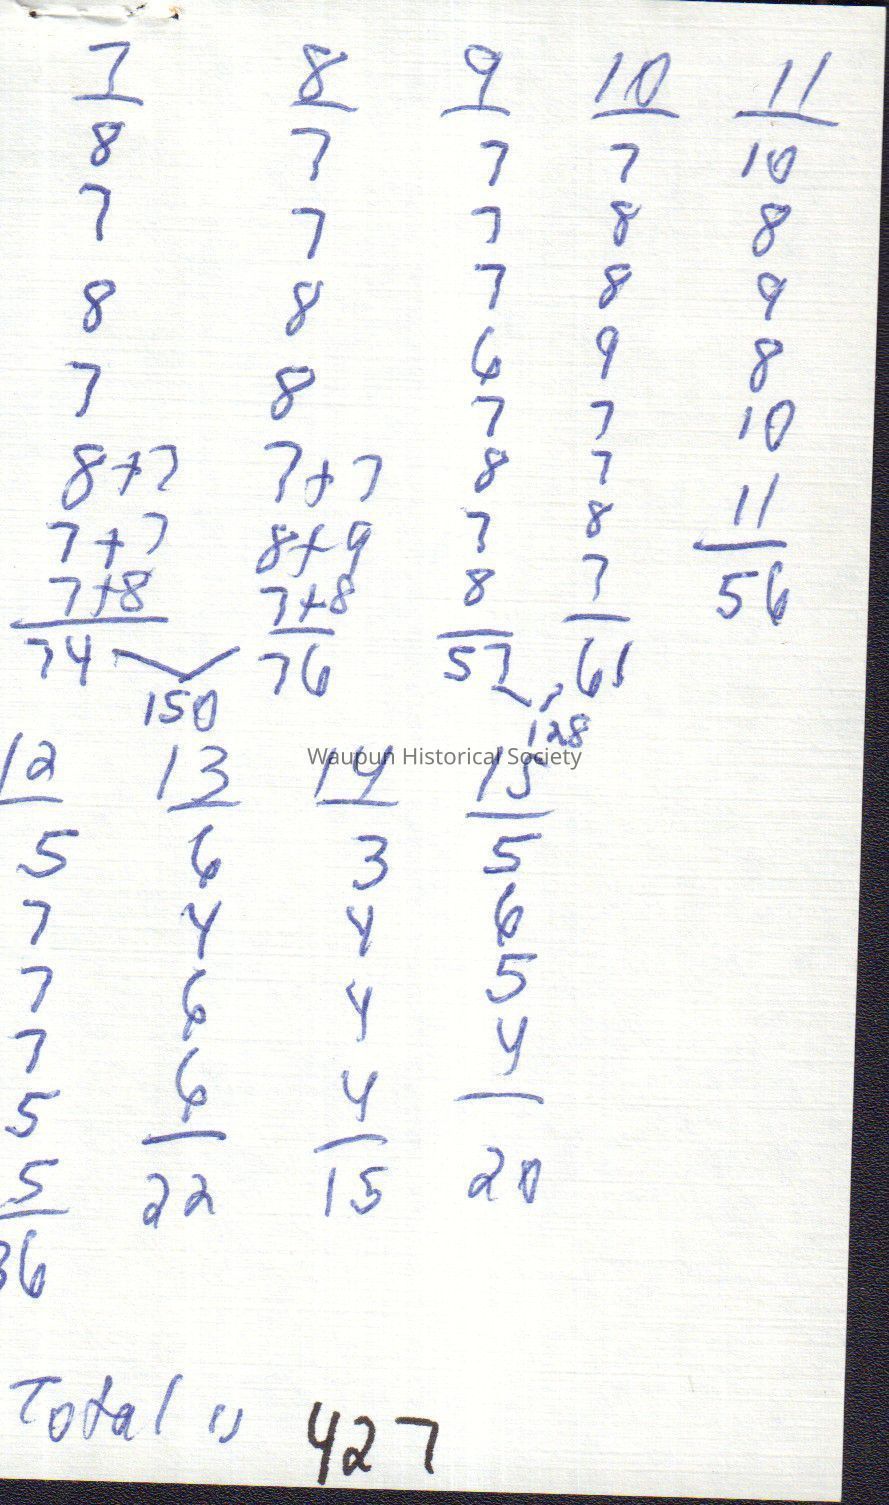 7 8 9 10 11
8 7 7 7 10
7 7 7 8 8
8 8 7 8 9
7 8 6 9 8
8+7 7+7 7 7 10
7+7 8+9 8 7 11
7+8 7+8 7 8 56
74 76 8 7
150 57 61
128
Waupun Historical Society
12 13 14 15
5 6 3 5
7 4 4 6
7 6 4 5
7 6 4 4
5 22 15 20
5
36
Total is 427